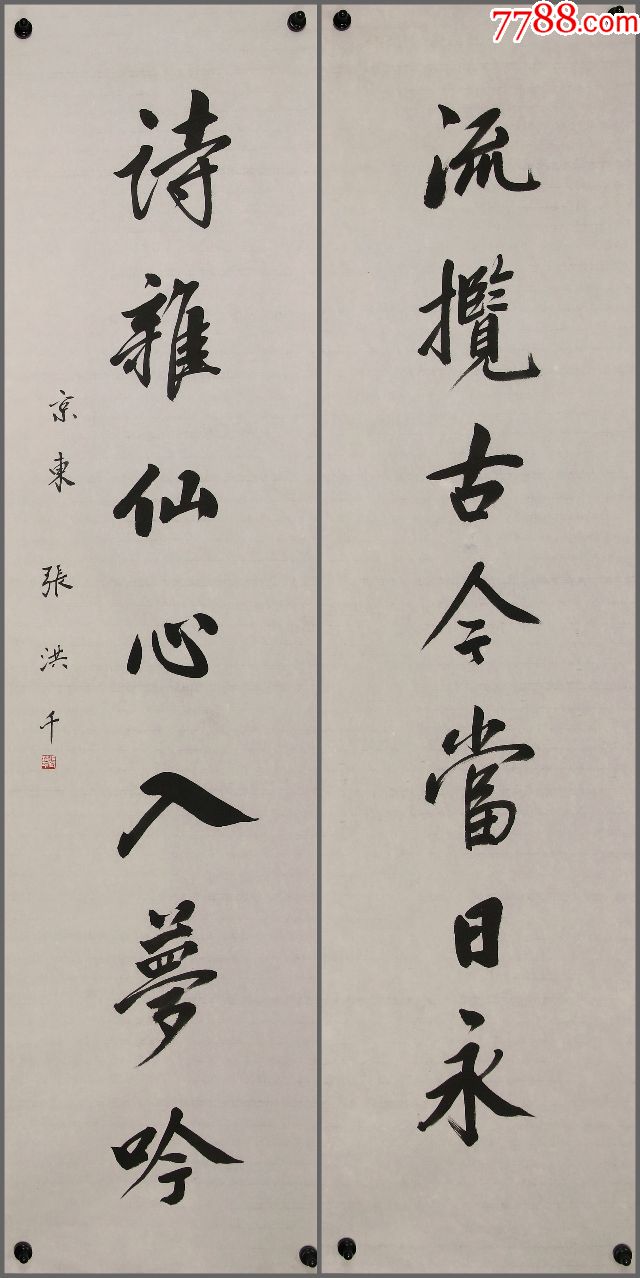 7788.com
流攬古今當日永
詩雜仙心入夢吟
京東 張洪千